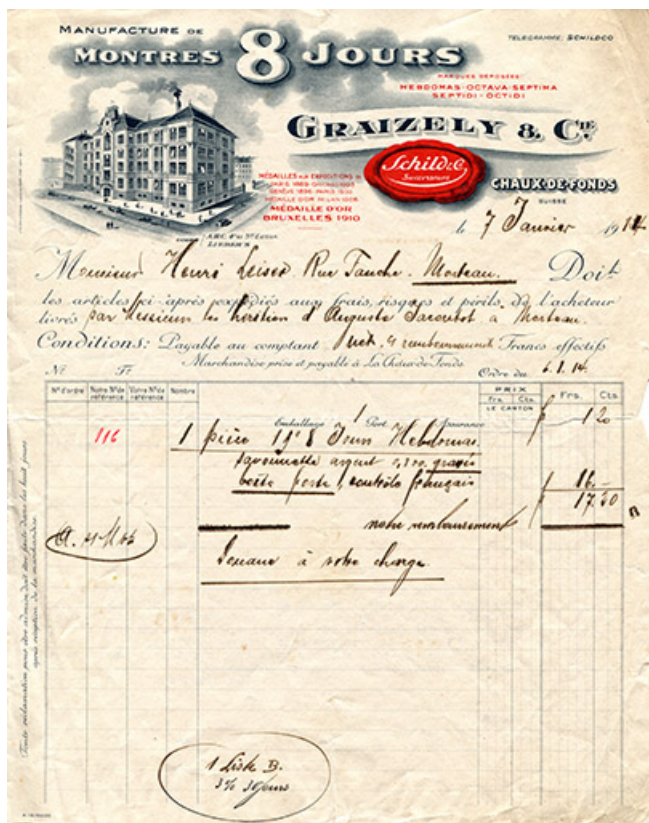 MANUFACTURE DE
MONTRES 8 JOURS
TELEGRAMME: SCHILDCO
MARQUES DÉPOSÉES
HEBDOMAS·OCTAVA·SEPTIMA
SEPTIDI·OCTIDI
GRAIZELY & CIE.
Schild & Co
Successeurs
CHAUX-DE-FONDS
SUISSE
MÉDAILLES AUX EXPOSITIONS
MÉDAILLE D'OR
BRUXELLES 1910
A.B.C. 4th et 5th Edition
LIEBER'S
le 7 Janvier 1914
Monsieur Henri Leiser Rue Fauche. Morteau. Doit
les articles ci-après expédiés aux frais, risques et périls, de l'acheteur
livrés par Messieurs les héritiers d'Auguste à Morteau.
Conditions: Payable au comptant Net. remboursement Francs effectifs
Marchandise prise et payable à La Chaux-de-Fonds
No Fr Ordre du 6.1.14.
N° d'ordre Notre N° de référence Votre N° de référence Nombre PRIX Frs. Cts. LE CARTON Frs. Cts.
Emballage Port Assurance 1 20
116 1 pièce 19" 8 Jours Hebdomas.
savonnette argent 0,800 gravés
boîte forte, contrôle français 16.-
17.50
notre remboursement
Douane à votre charge.
Toute réclamation pour être admise doit être faite dans les huit jours
après réception de la marchandise.
1 Liste B.
3% 30 jours